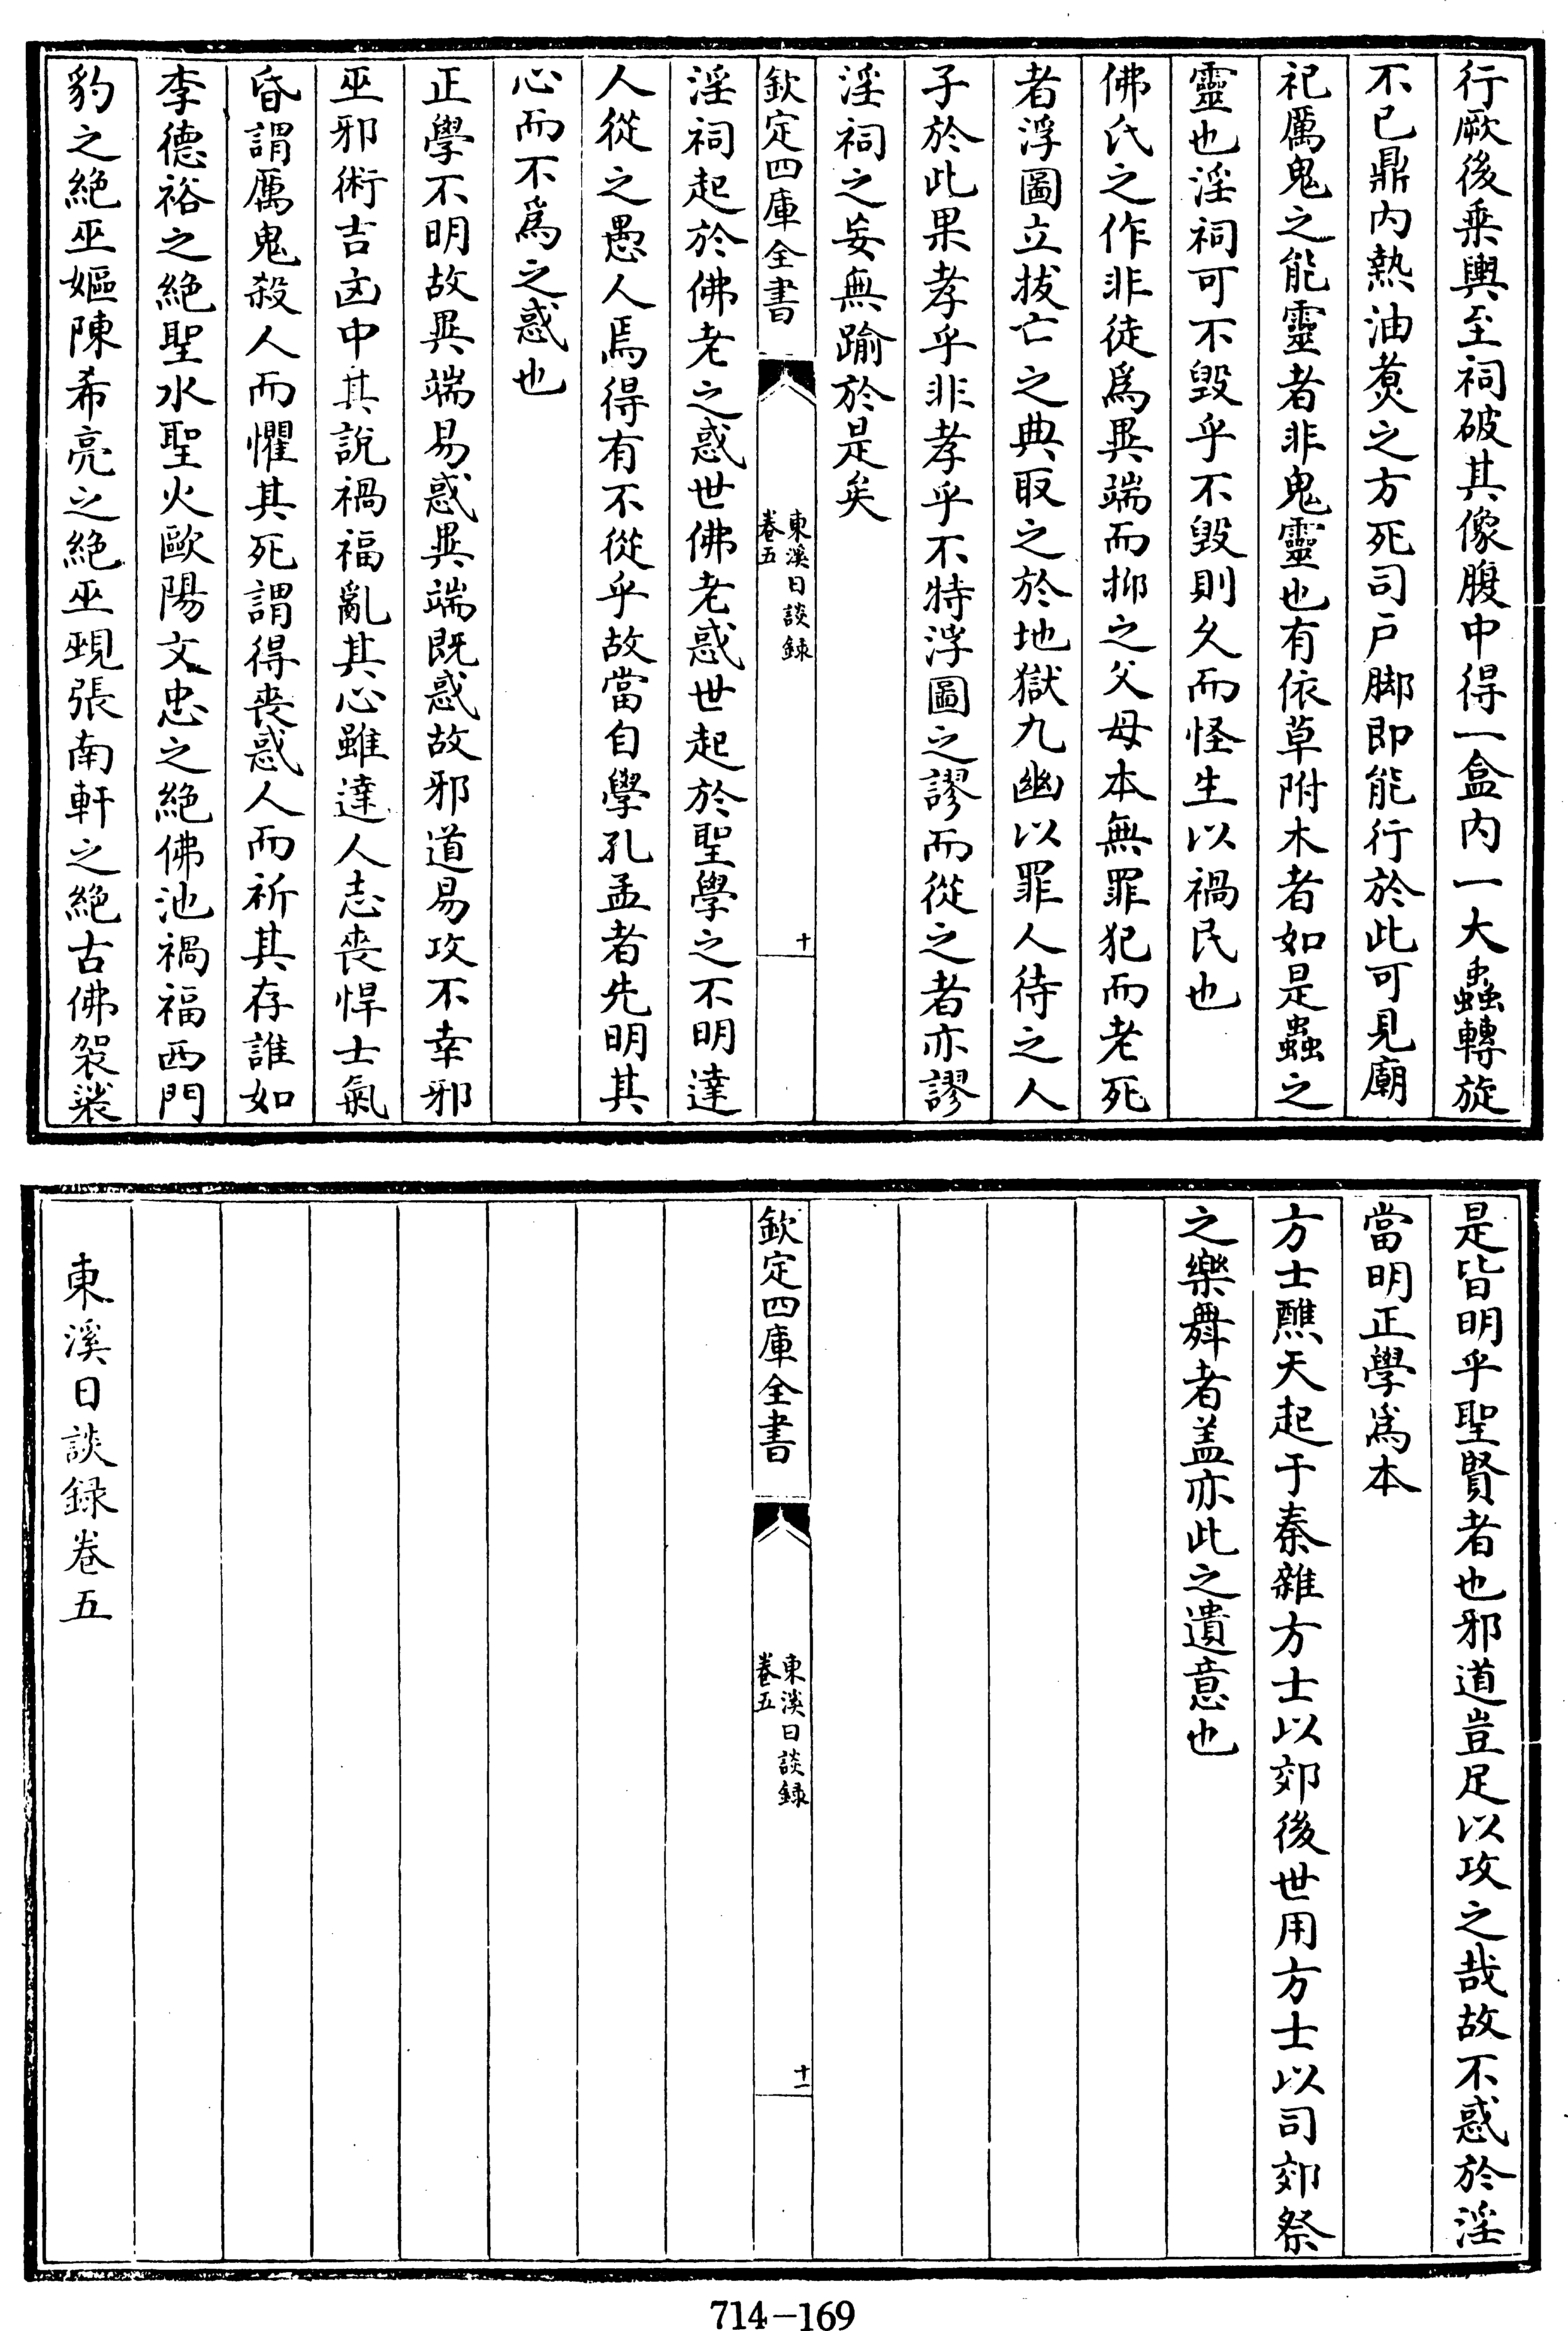 行厥後乗輿至祠破其像腹中得一盒内一大蟲轉旋
不已鼎内熱油煮之方死司戸脚即能行於此可見廟
祀厲鬼之能靈者非鬼靈也有依草附木者如是蟲之
靈也淫祠可不毁乎不毁則久而怪生以禍民也
佛氏之作非徒爲異端而抑之父母本無罪犯而老死
者浮圖立拔亡之典取之於地獄九幽以罪人待之人
子於此果孝乎非孝乎不特浮圖之謬而從之者亦謬
淫祠之妄無踰於是矣
欽定四庫全書
東溪日談録
卷五
十
淫祠起於佛老之惑世佛老惑世起於聖學之不明達
人從之愚人焉得有不從乎故當自學孔孟者先明其
心而不爲之惑也
正學不明故異端易惑異端既惑故邪道易攻不幸邪
巫邪術吉凶中其說禍福亂其心雖達人志喪悍士氣
昏謂厲鬼殺人而懼其死謂得喪惑人而祈其存誰如
李德裕之絶聖水聖火歐陽文忠之絶佛池禍福西門
豹之絶巫嫗陳希亮之絶巫覡張南軒之絶古佛袈裟
是皆明乎聖賢者也邪道豈足以攻之哉故不惑於淫
當明正學爲本
方士醮天起于秦雜方士以郊後世用方士以司郊祭
之樂舞者盖亦此之遺意也
欽定四庫全書
東溪日談録
卷五
十一
東溪日談録卷五
714-169